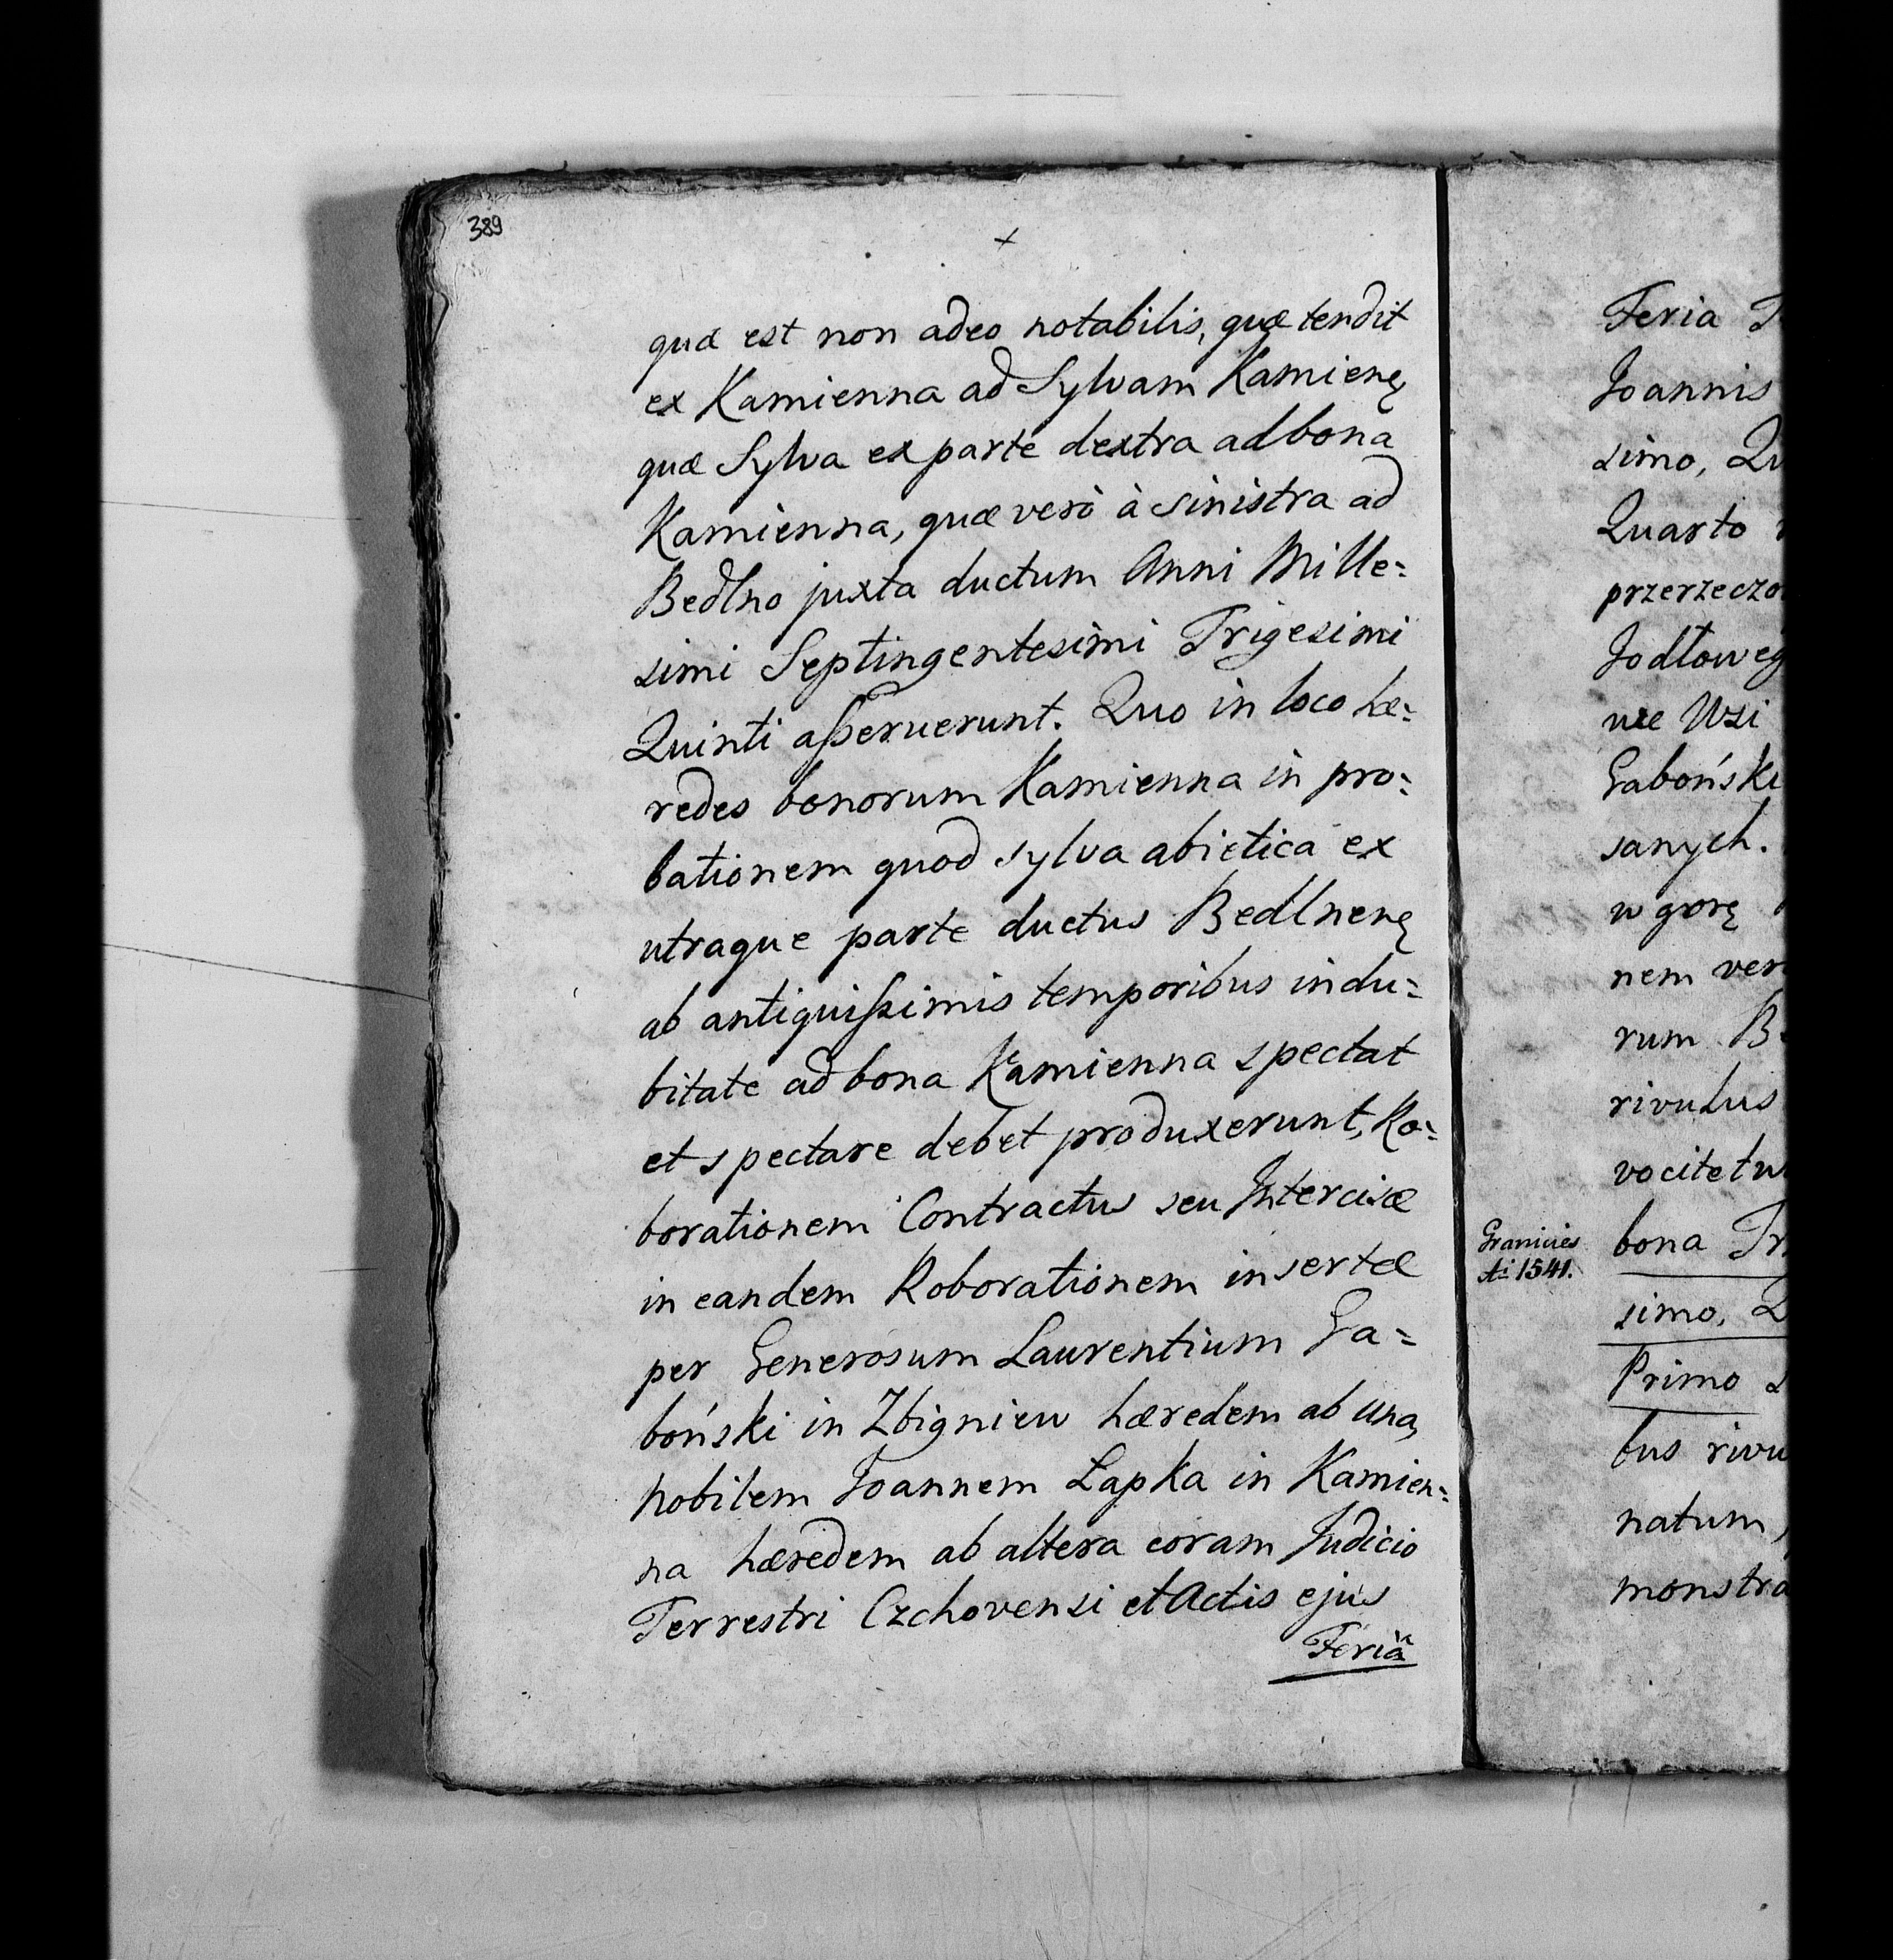 389
quæ est non adeo notabilis, quæ tendit
ex Kamienna ad Sylvam Kamienę
quæ Sylva ex parte dextra ad bona
Kamienna, quæ verò à sinistra ad
Bedlno juxta ductum Anni Mille=
simi Septingentesimi Trigesimi
Quinti aſseruerunt. Quo in loco hæ=
redes bonorum Kamienna in pro=
bationem quod sylva abietica ex
utraque parte ductus Bedlnenę
ab antiquiſsimis temporibus indu=
bitate ad bona Kamienna spectat
et spectare debet produxerunt, Ro=
borationem Contractus seu Intercisæ
in eandem Roborationem insertæ
per Generosum Laurentium Ga=
boński in Zbigniew hæredem ab una,
nobilem Joannem Łapka in Kamien=
na hæredem ab altera coram Judicio
Terrestri Czchovensi et Actis ejus
Feriâ
Feria
Joannis
simo, Qu
Quarto
przerzeczo
Jodłoweg
wie Wsi
Gaboński
sanych.
w gorę
nem ver
rum Be
rivulus
vocitetu
Granicies
Ai 1541.
bona Tr
simo, Q
Primo
bus rivu
natum,
monstra